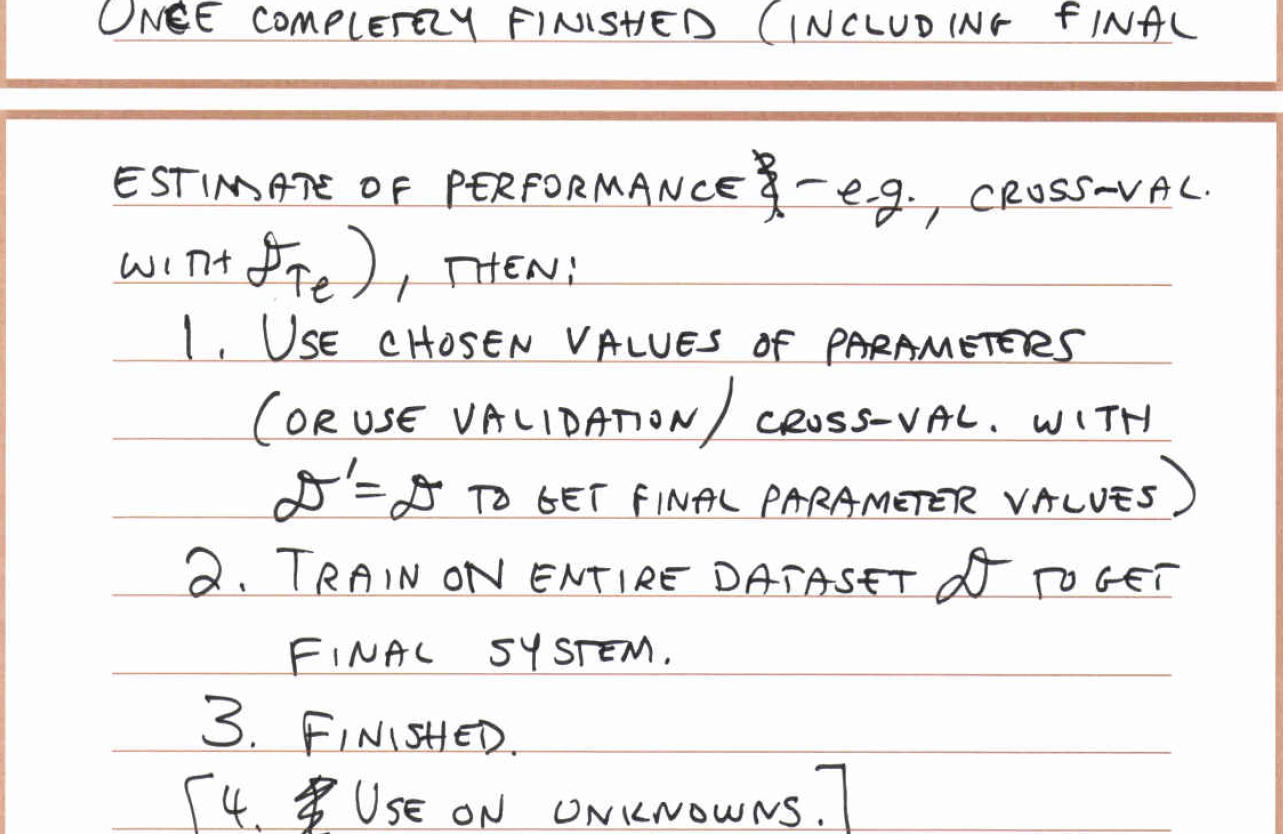 ONCE COMPLETELY FINISHED (INCLUDING FINAL
ESTIMATE OF PERFORMANCE – e.g., CROSS-VAL.
WITH 𝒟_Te), THEN:
1. USE CHOSEN VALUES OF PARAMETERS
(OR USE VALIDATION/CROSS-VAL. WITH
𝒟'=𝒟 TO GET FINAL PARAMETER VALUES)
2. TRAIN ON ENTIRE DATASET 𝒟 TO GET
FINAL SYSTEM.
3. FINISHED.
[4. USE ON UNKNOWNS.]